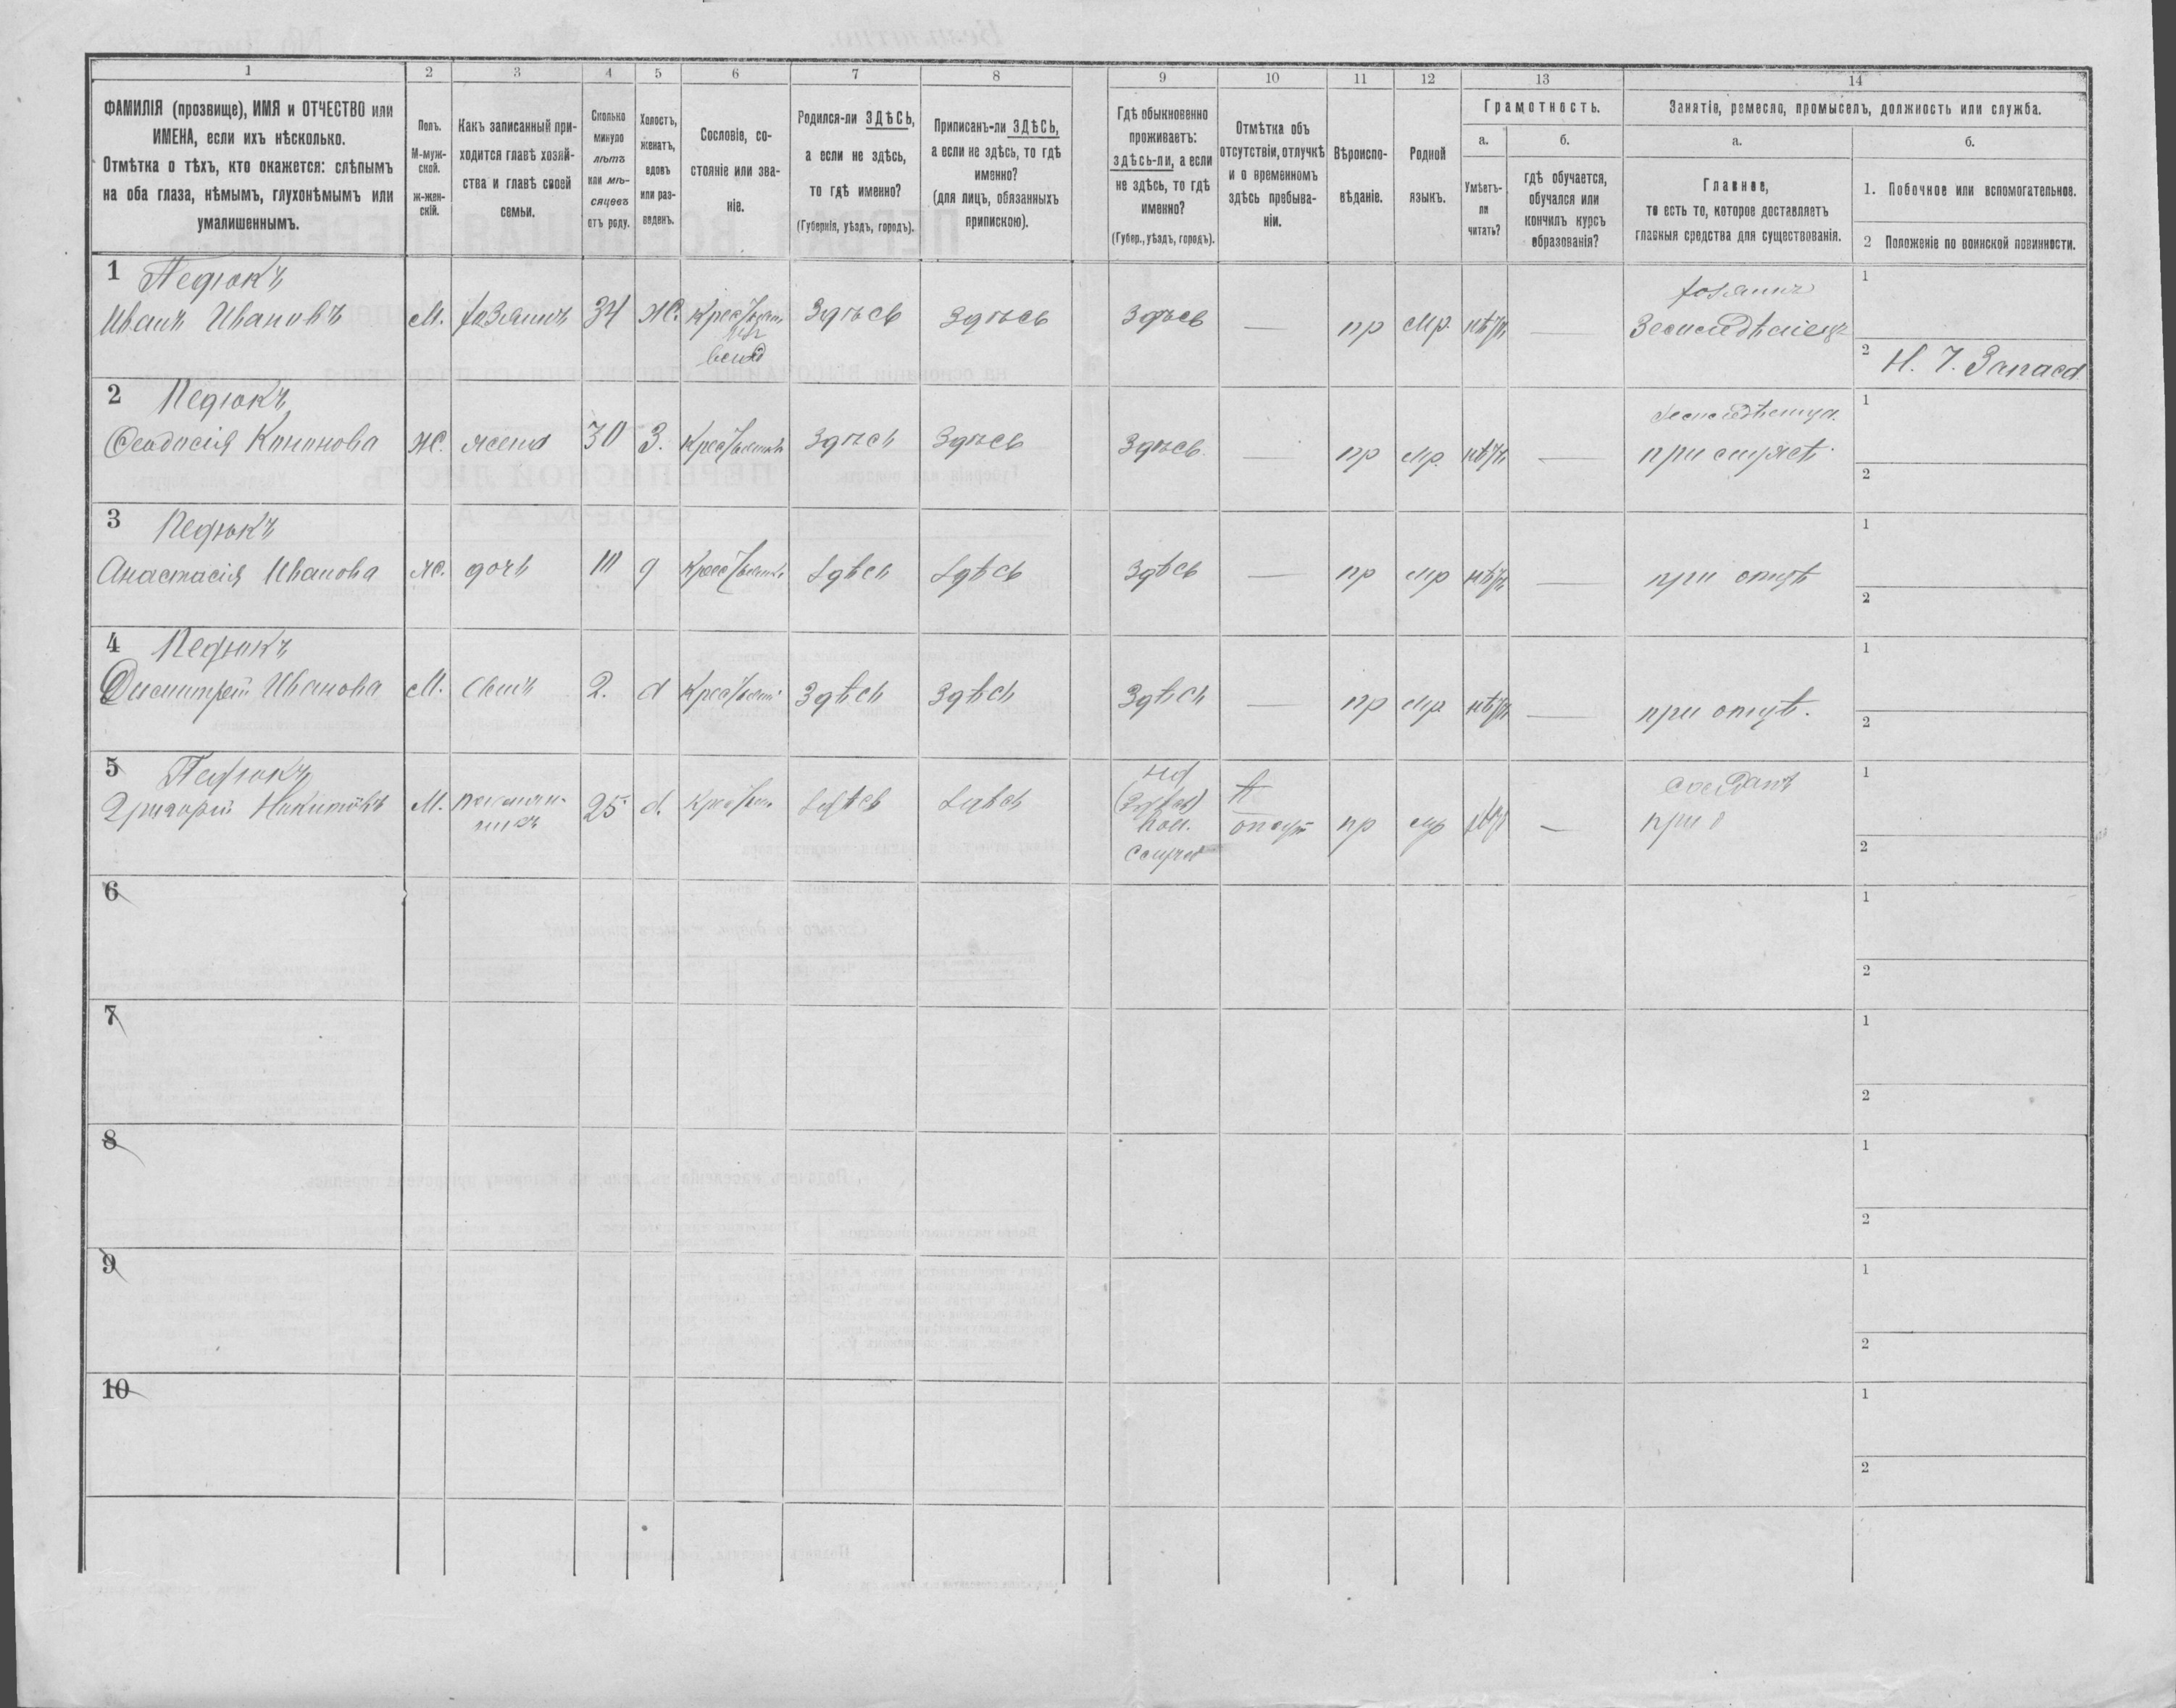 1 2 3 4 5 6 7 8 9 10 11 12 13 14
ФАМИЛІЯ (прозвище), ИМЯ и ОТЧЕСТВО или
ИМЕНА, если ихъ нѣсколько.
Отмѣтка о тѣхъ, кто окажется: слѣпымъ
на оба глаза, нѣмымъ, глухонѣмымъ или
умалишеннымъ.
Полъ.
М-муж-
ской.
ж-жен-
скій.
Какъ записанный при-
ходится главѣ хозяй-
ства и главѣ своей
семьи.
Сколько
минуло
лѣтъ
или мѣ-
сяцевъ
отъ роду.
Холостъ,
женатъ,
вдовъ
или раз-
веденъ.
Сословіе, со-
стояніе или зва-
ніе.
Родился-ли ЗДѢСЬ,
а если не здѣсь,
то гдѣ именно?
(Губернія, уѣздъ, городъ).
Приписанъ-ли ЗДѢСЬ,
а если не здѣсь, то гдѣ
именно?
(для лицъ, обязанныхъ
припискою).
Гдѣ обыкновенно
проживаетъ:
здѣсь-ли, а если
не здѣсь, то гдѣ
именно?
(Губер., уѣздъ, городъ).
Отмѣтка объ
отсутствіи, отлучкѣ
и о временномъ
здѣсь пребыва-
ніи.
Вѣроиспо-
вѣданіе.
Родной
языкъ.
Грамотность.
а.
Умѣетъ-
ли
читать?
б.
гдѣ обучается,
обучался или
кончилъ курсъ
образованія?
Занятіе, ремесло, промыселъ, должность или служба.
а.
Главное,
то есть то, которое доставляетъ
главныя средства для существованія.
б.
1. Побочное или вспомогательное.
2 Положеніе по воинской повинности.
1 Педюкъ
Иванъ Ивановъ М. хозяинъ 34 Ж. Здѣсь Здѣсь Здѣсь — пр мр. нѣтъ —
хозяинъ
Земледѣлецъ
1
2
2 Педюкъ
Ѳеодосія Кононова Ж. жена 30 З. Здѣсь Здѣсь Здѣсь — пр мр. нѣтъ —
1
2
3 Педюкъ
Анастасія Иванова Ж. дочь д Здѣсь Здѣсь Здѣсь — пр мр нѣтъ — при отцѣ
1
2
4 Педюкъ
Димитрій Иванова М. сынъ 2. Здѣсь Здѣсь Здѣсь — пр мр нѣтъ — при отцѣ.
1
2
5 Педюкъ
Григорій Никитовъ М. 25 Здѣсь Здѣсь пр мр —
1
2
6
1
2
7
1
2
8
1
2
9
1
2
10
1
2